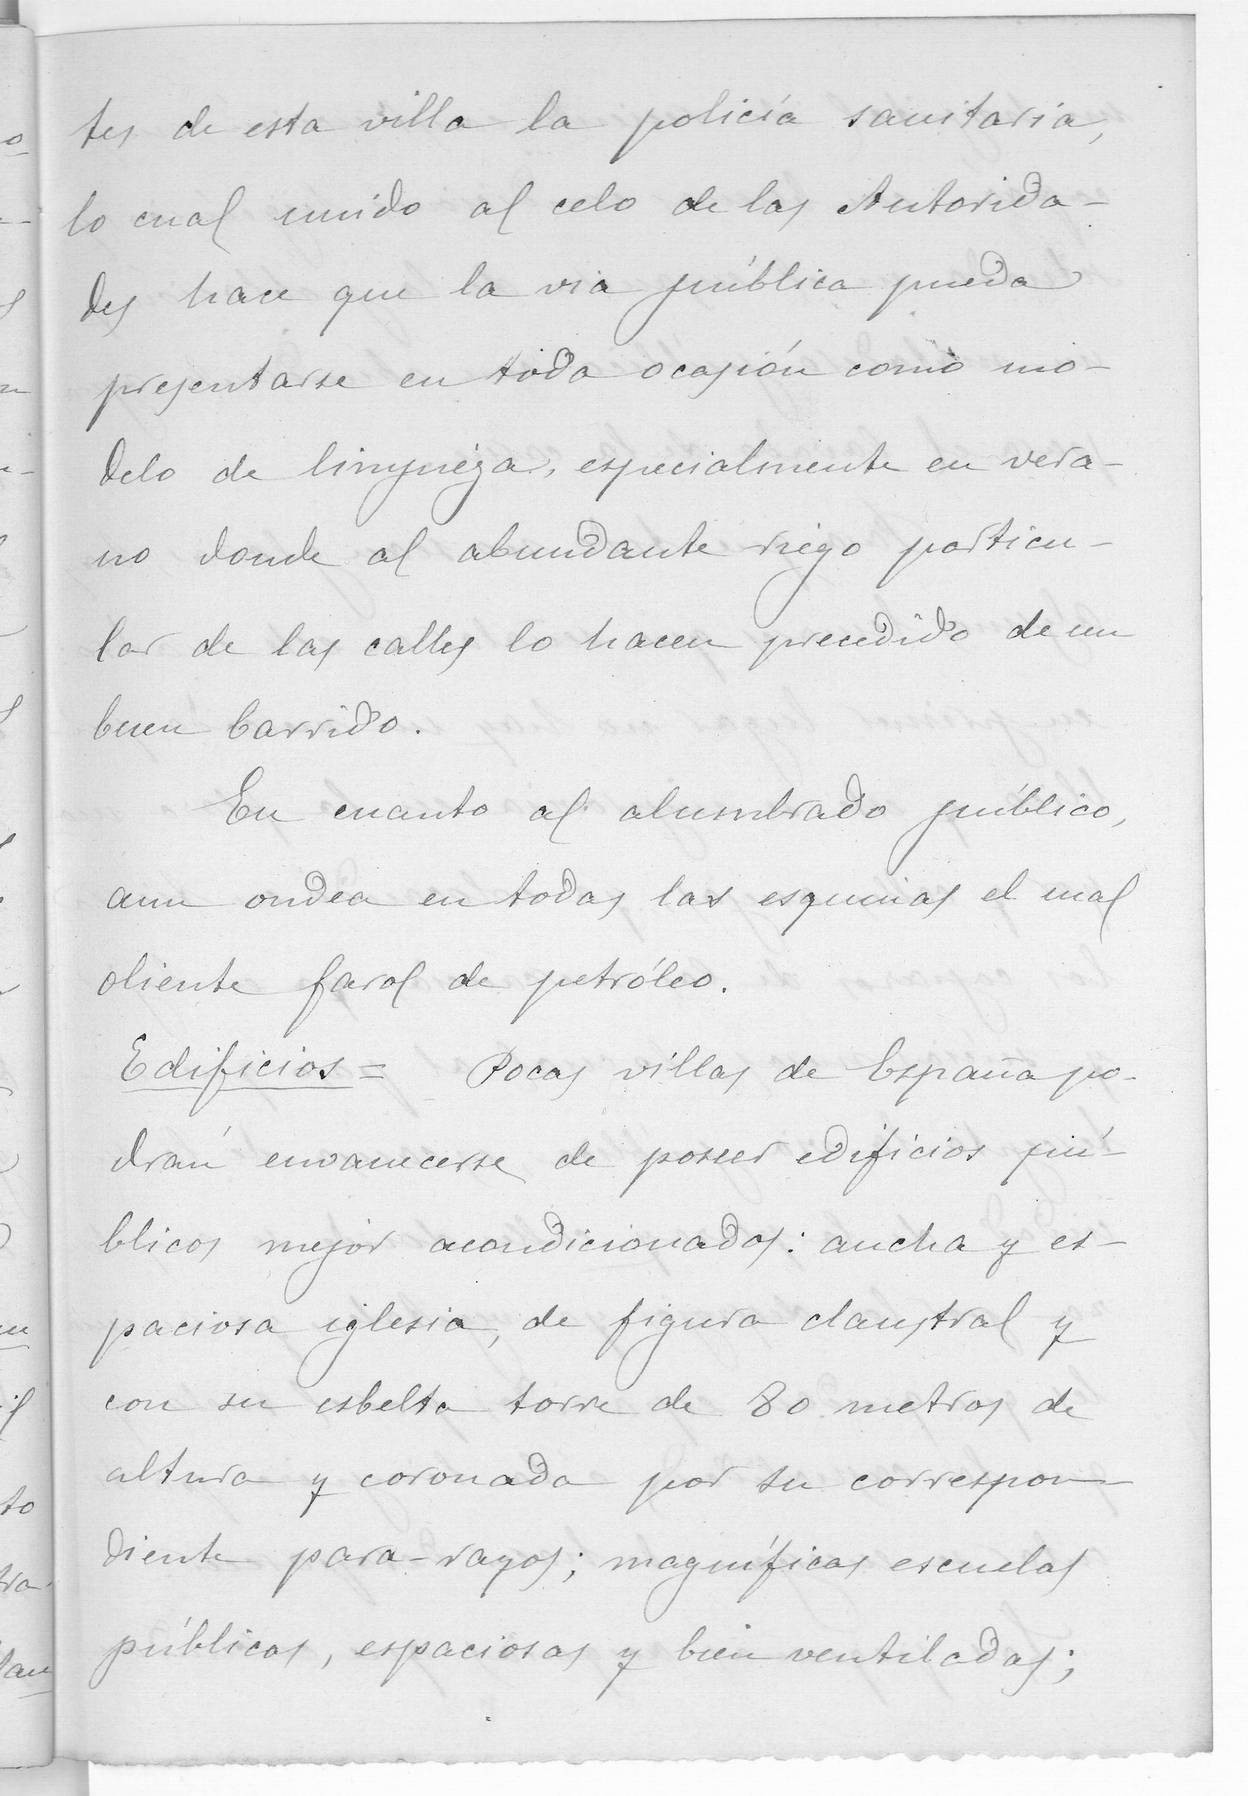 tes de esta villa la policía sanitaria,
lo cual unido al celo de las Autorida-
des hace que la via pública pueda
presentarse en toda ocasión como mo-
delo de limpieza, especialmente en vera-
no donde al abundante riego particu-
lar de las calles lo hacen precedido de un
buen barrido.
En cuanto al alumbrado público,
aun ondea en todas las esquinas el mal
oliente farol de petróleo.
Edificios = Pocas villas de España po-
drán envanecerse de poseer edificios pú-
blicos mejor acondicionados: ancha y es-
paciosa iglesia, de figura claustral y
con su esbelta torre de 80 metros de
altura y coronada por su correspon-
diente para-rayos; magníficas escuelas
públicas, espaciosas y bien ventiladas;